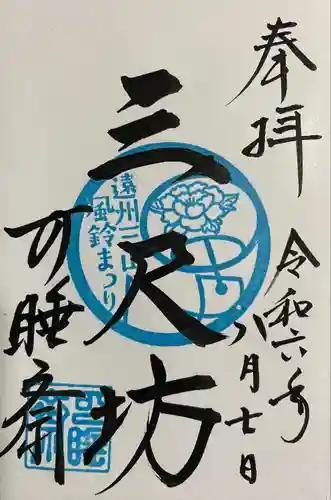 奉拝
令和六年
八月七日
三尺坊
遠州三山
風鈴まつり
可睡斎